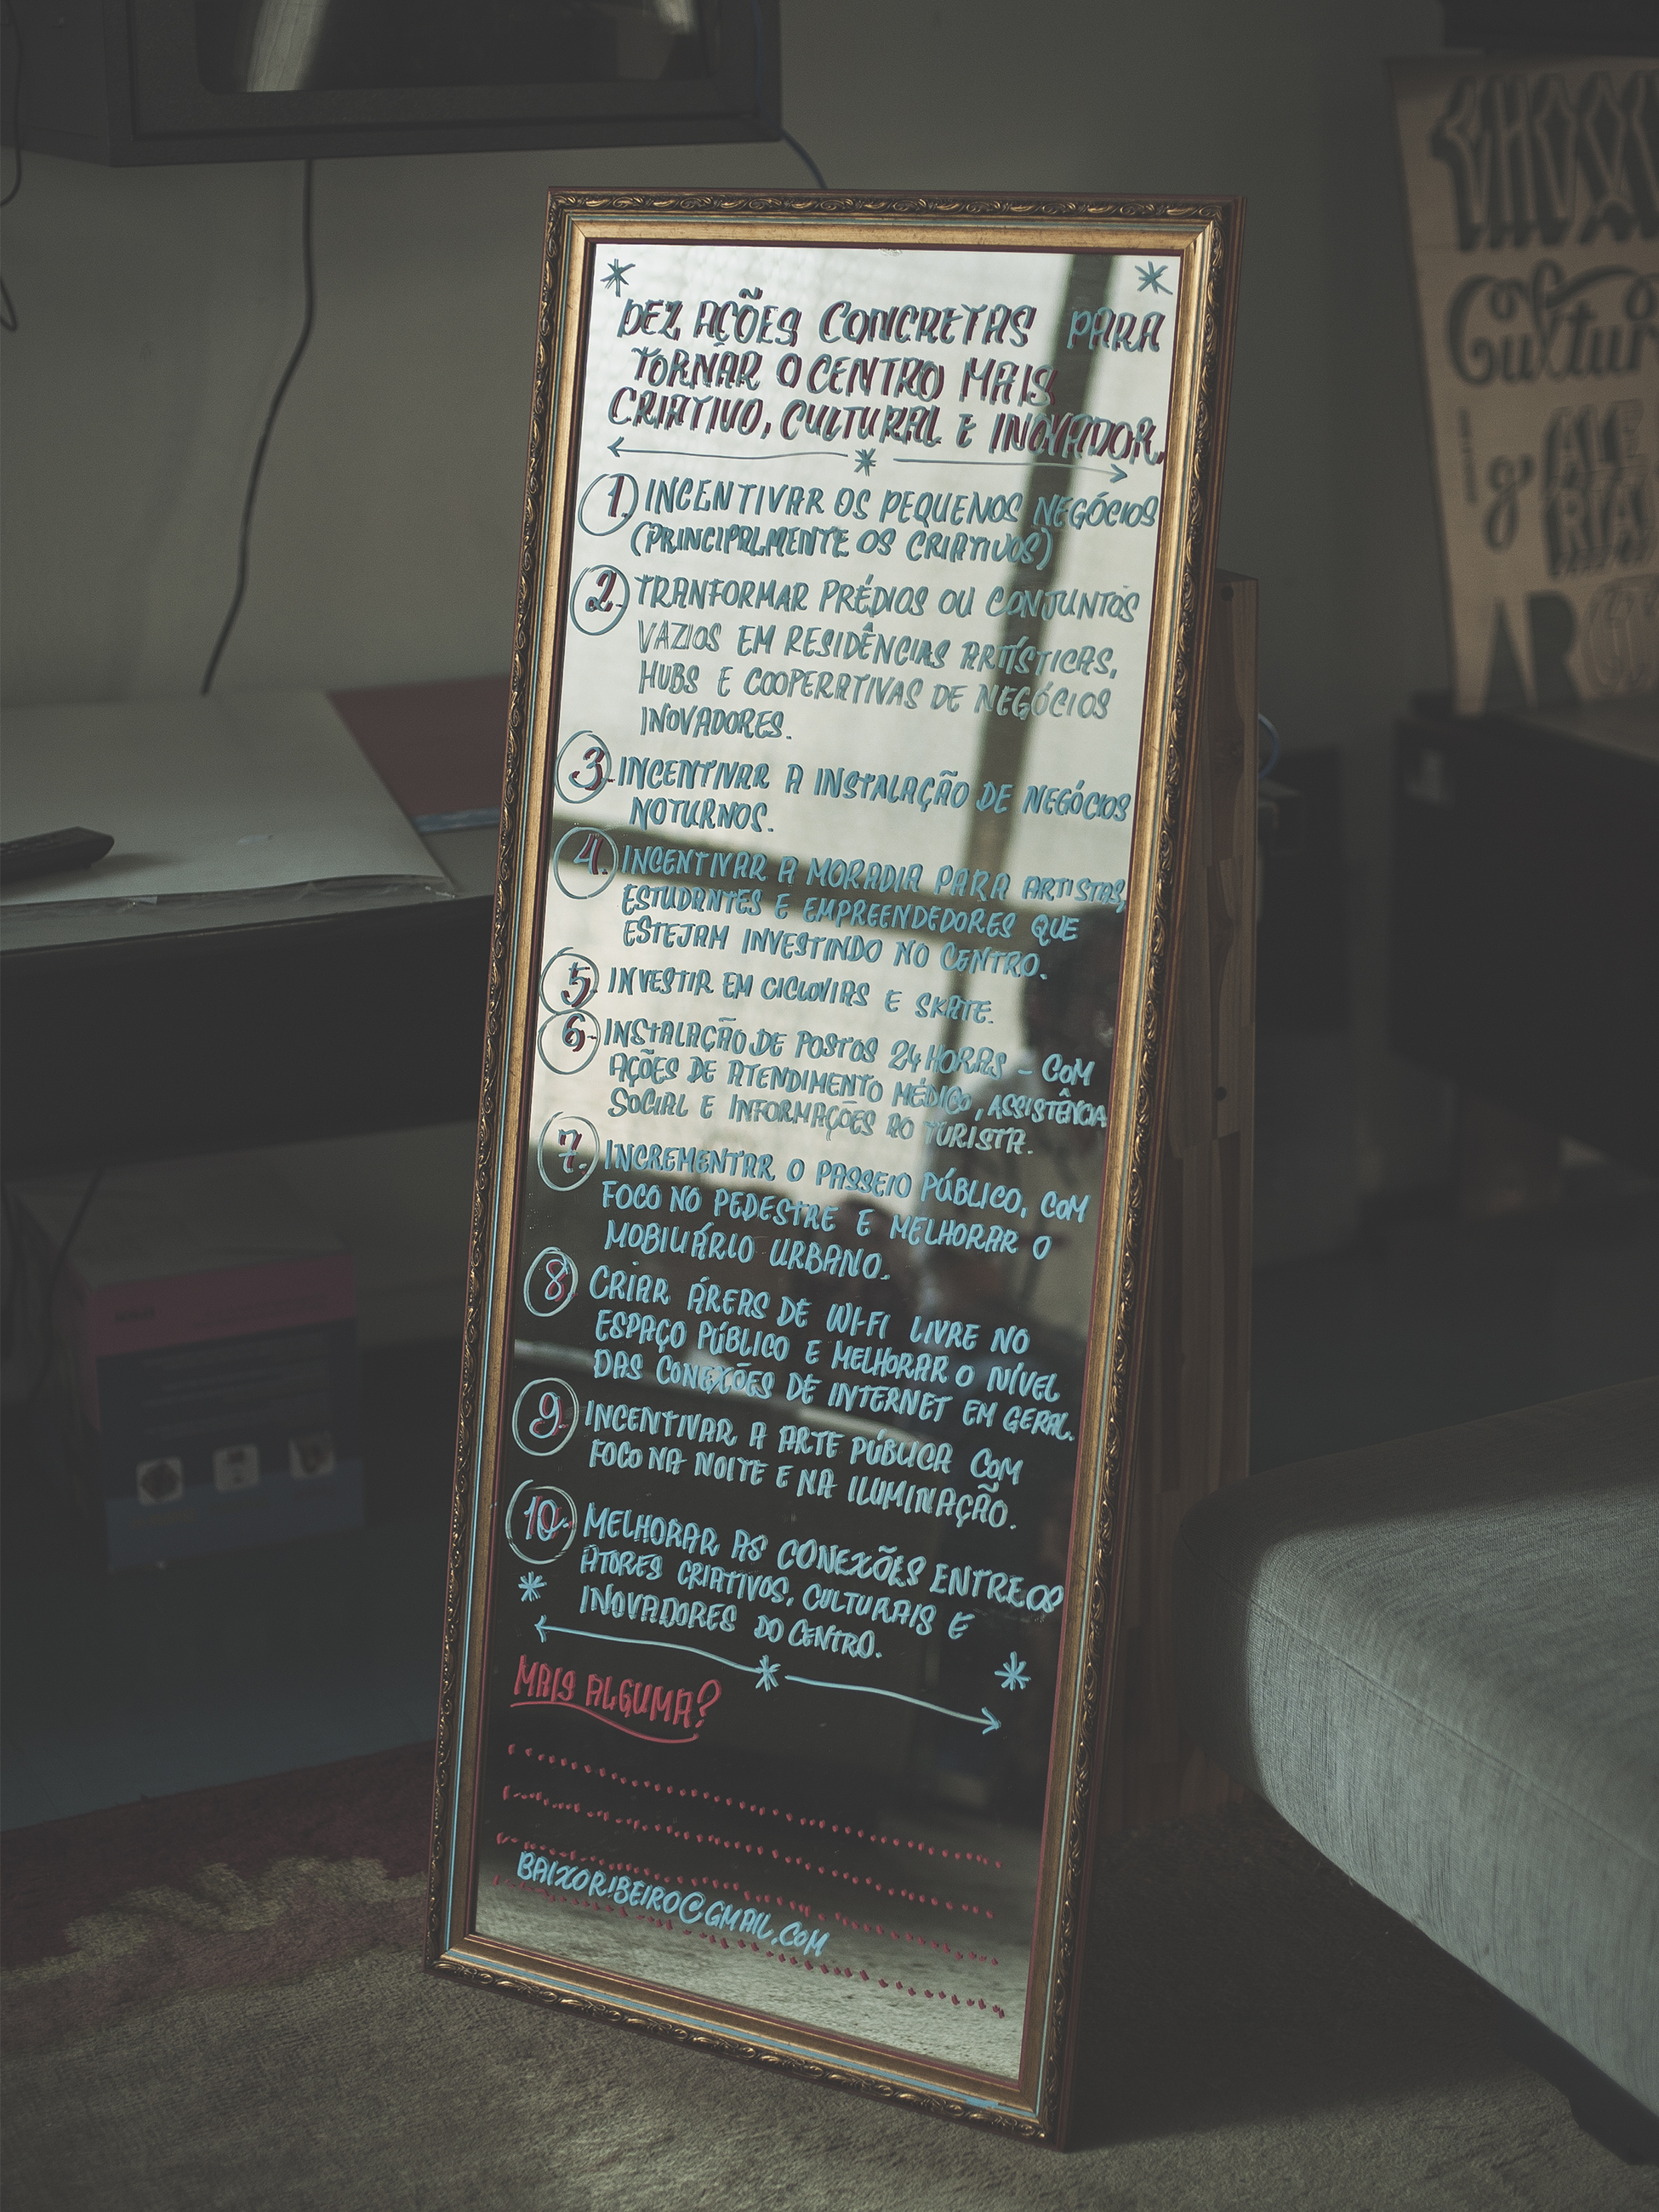 DEZ AÇÕES CONCRETAS PARA
TORNAR O CENTRO MAIS
CRIATIVO, CULTURAL E INOVADOR.
1. INCENTIVAR OS PEQUENOS NEGÓCIOS
(PRINCIPALMENTE OS CRIATIVOS)
2. TRANFORMAR PRÉDIOS OU CONJUNTOS
VAZIOS EM RESIDÊNCIAS ARTÍSTICAS,
HUBS E COOPERATIVAS DE NEGÓCIOS
INOVADORES.
3. INCENTIVAR A INSTALAÇÃO DE NEGÓCIOS
NOTURNOS.
4. INCENTIVAR A MORADIA PARA ARTISTAS,
ESTUDANTES E EMPREENDEDORES QUE
ESTEJAM INVESTINDO NO CENTRO.
5. INVESTIR EM CICLOVIAS E SKATE.
6. INSTALAÇÃO DE POSTOS 24 HORAS - COM
AÇÕES DE ATENDIMENTO MÉDICO, ASSISTÊNCIA
SOCIAL E INFORMAÇÕES AO TURISTA.
7. INCREMENTAR O PASSEIO PÚBLICO, COM
FOCO NO PEDESTRE E MELHORAR O
MOBILIÁRIO URBANO.
8 CRIAR ÁREAS DE WI-FI LIVRE NO
ESPAÇO PÚBLICO E MELHORAR O NÍVEL
DAS CONEXÕES DE INTERNET EM GERAL.
9. INCENTIVAR A ARTE PÚBLICA COM
FOCO NA NOITE E NA ILUMINAÇÃO.
10. MELHORAR AS CONEXÕES ENTRE OS
ATORES CRIATIVOS, CULTURAIS E
INOVADORES DO CENTRO.
MAIS ALGUMA?
BAIXORIBEIRO@GMAIL.COM
Cultur